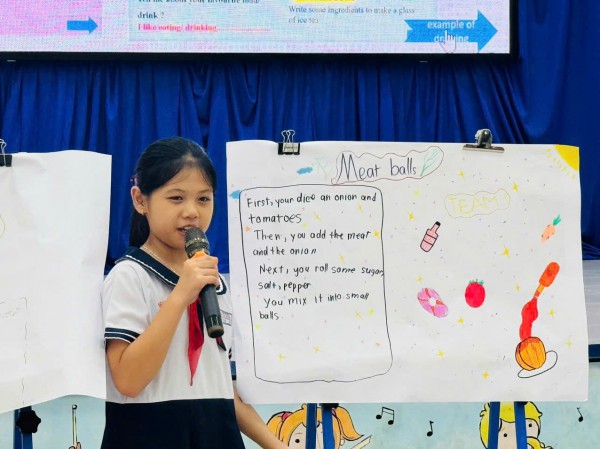 drink ?
I like eating/ drinking
Write some ingredients to make a glass
of ice tea
example of
Meat balls
TEAM
First, your dice an onion and
tomatoes
Then, you add the meat
and the onion
Next, you roll some sugar,
salt, pepper
you mix it into small
balls.